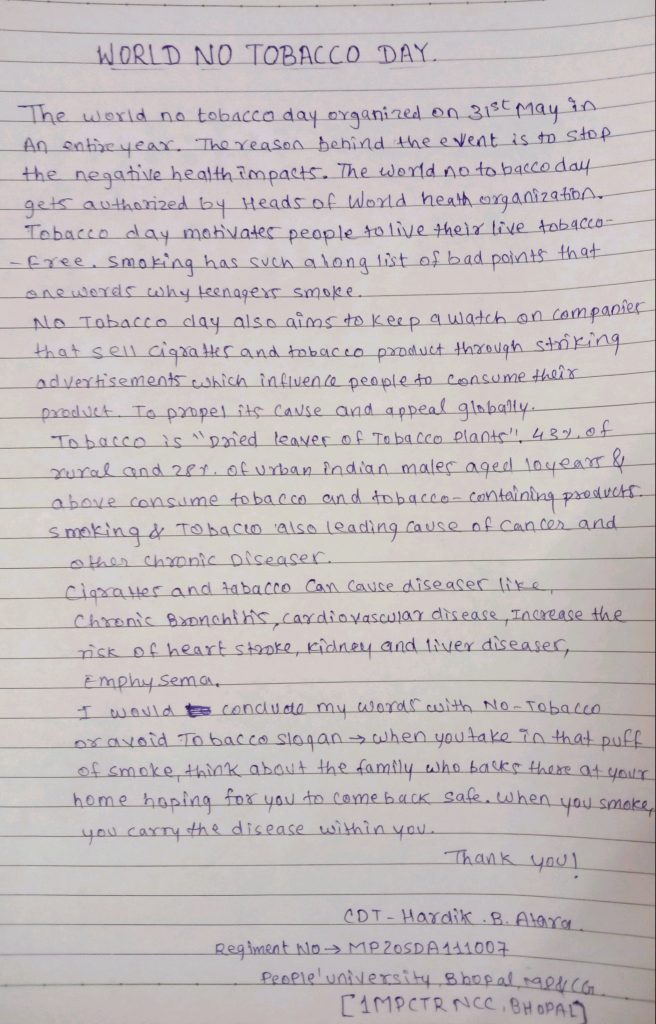 WORLD NO TOBACCO DAY.
The world no tobacco day organized on 31st May in
An entire year. The reason behind the event is to stop
the negative health impacts. The world no tobacco day
gets authorized by Heads of World heath organization.
Tobacco day motivates people to live their live tobacco-
-Free. Smoking has such a long list of bad points that
one words why teenagers smoke.
No Tobacco day also aims to keep a watch on companies
that sell cigrattes and tobacco product through striking
advertisements which influence people to consume their
product. To propel its cause and appeal globally.
Tobacco is "Dried leaves of Tobacco plants". 43%. of
rural and 28%. of urban indian males aged 10years &
above consume tobacco and tobacco-containing products.
Smoking & Tobacco also leading cause of cancer and
other chronic Diseases.
Cigrattes and tabacco can cause diseases like,
Chronic Bronchitis, cardiovascular disease, Increase the
risk of heart stroke, kidney and liver diseases,
Emphysema.
I would conclude my words with No-Tobacco
or avoid Tobacco slogan → when you take in that puff
of smoke, think about the family who backs there at your
home hoping for you to come back safe. when you smoke,
you carry the disease within you.
Thank you!
CDT - Hardik .B. Atara.
Regiment No → MP20SDA111007
People'university, Bhopal, MP&CG
[1MPCTR NCC, BHOPAL]